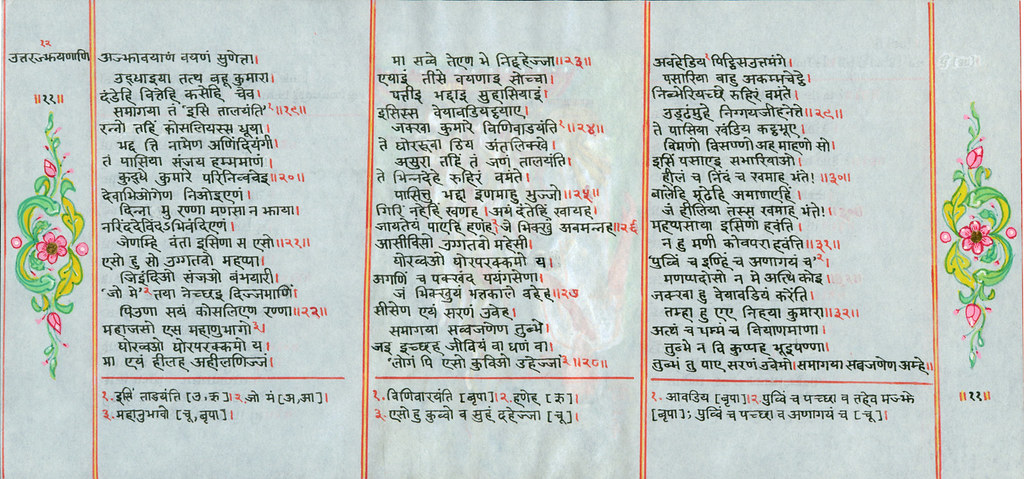 १२
उत्तरज्झयणाणि
॥२१॥
अज्झावयाणं वयणं सुणेत्ता।
उद्धाइया तत्थ बहू कुमारा।
दंडेहि वित्तेहि कसेहि चेव
समागया तं 'इसि तालयंति'१॥१९॥
रन्नो तहिं कोसलियस्स धूया।
भद्द त्ति नामेण अणिंदियंगी।
तं पासिया संजय हम्ममाणं।
कुद्धे कुमारे परिनिव्ववेइ॥२०॥
देवाभिओगेण निओइएणं।
दिन्ना मु रण्णा मणसा न झाया।
नरिंददेविंदऽभिवंदिएणं।
जेणम्हि वंता इसिणा स एसो॥२१॥
एसो हु सो उग्गतवो महप्पा।
जिइंदिओ संजओ बंभयारी।
'जो मे'२तया नेच्छइ दिज्जमाणिं
पिउणा सयं कोसलिएण रण्णा॥२२॥
महाजसो एस महाणुभागो३।
घोरव्वओ घोरपरक्कमो य।
मा एयं हीलह अहीलणिज्जं
१. इसिं ताडयंति [उ, ऋ] २. जो मं [अ, आ]।
३. महाणुभावो [चू, बृपा]।
मा सव्वे तेएण भे निद्दहेज्जा॥२३॥
एयाइं तीसे वयणाइ सोच्चा।
पत्तीइ भद्दाइ सुहासियाइं
इसिस्स वेयावडियट्ठयाए।
जक्खा कुमारे विणिवाडयंति१॥२४॥
ते घोररूवा ठिय अंतलिक्खे।
असुरा तहिं तं जणं तालयंति।
ते भिन्नदेहे रुहिरं वमंते।
पासित्तु भद्दा इणमाहु भुज्जो॥२५॥
गिरिं नहेहिं खणह। अयं दंतेहिं खायह।
जायतेयं पाएहि हणेह२ जे भिक्खुं अवमन्नह॥२६
आसीविसो उग्गतवो महेसी।
घोरव्वओ घोरपरक्कमो य।
अगणिं व पक्खंद पयंगसेणा।
जं भिक्खुयं भत्तकाले वहेह॥२७
सीसेण एयं सरणं उवेह।
समागया सव्वजणेण तुब्भे।
जइ इच्छह जीवियं वा धणं वा।
'लोगं पि एसो कुविओ डहेज्जा३॥२८॥
१. विणिवारयंति [बृपा]। २. हणेह [ऋ]।
३. एसो हु कुव्वो व सुहं दहेज्जा [चू]।
अवहेडिय१पिट्ठिसउत्तमंगे।
पसारिया बाहु अकम्मचेट्ठे।
निब्भेरियच्छे रुहिरं वमंते।
उड्ढंमुहे निग्गयजीहनेत्ते॥२९॥
ते पासिया खंडिय कट्ठभूए।
विमणो विसण्णो अह माहणो सो।
इसिं पसाएइ सभारियाओ।
हीलं च निंदं च खमाह भंते!॥३०॥
बालेहि मूढेहि अयाणएहिं।
जं हीलिया तस्स खमाह भंते!।
महप्पसाया इसिणो हवंति।
न हु मुणी कोवपरा हवंति॥३१॥
'पुव्विं च इण्हिं च अणागयं च'२।
मणप्पदोसो न मे अत्थि कोइ।
जक्खा हु वेयावडियं करेंति।
तम्हा हु एए निहया कुमारा॥३२॥
अत्थं च धम्मं च वियाणमाणा।
तुब्भे न वि कुप्पह भूइपण्णा।
तुब्भं तु पाए सरणं उवेमो। समागया सव्वजणेण अम्हे॥
१. आवडिय [बृपा]। २. पुव्विं च पच्छा व तहेव मज्झे
[बृपा]; पुव्विं च पच्छा व अणागयं च [चू]।
॥२१॥